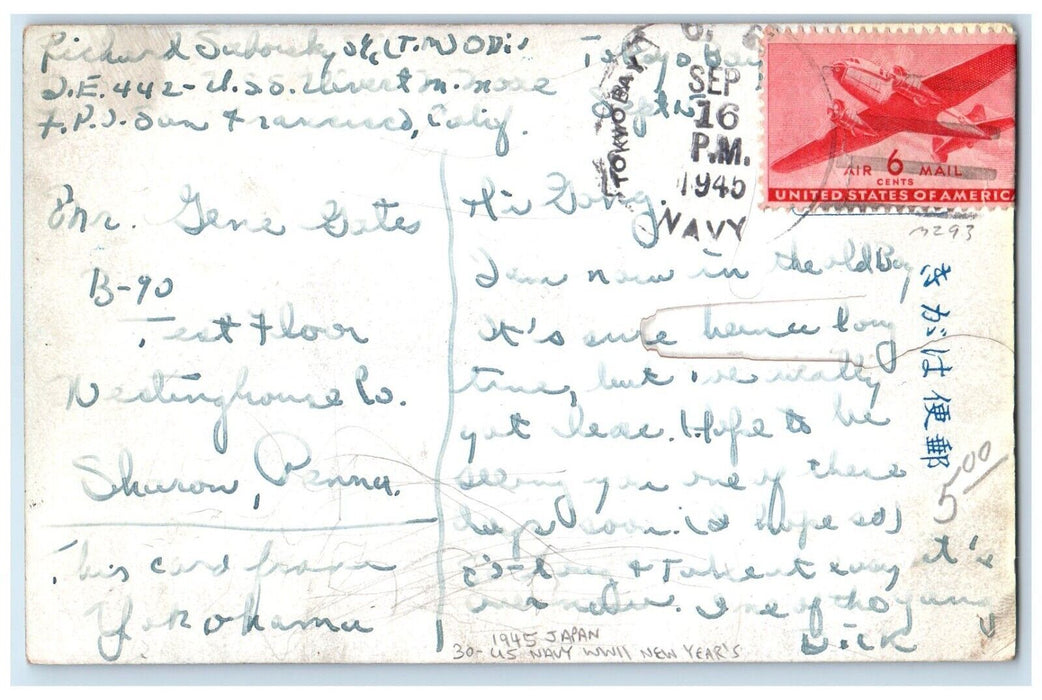 Richard S/c (T.M) ODiv
D.E. 442 - U.S.S. Ulvert M. Moore
F.P.O. San Francisco, Calif.
Tokyo Bay
Sept 15
TOKYO BAY
SEP
16
P.M.
1945
NAVY
AIR 6 MAIL
CENTS
UNITED STATES OF AMERICA
M293
Mr. Gene Gates
B-90
Test Floor
Westinghouse Co.
Sharon, Penna.
This card from
Yokohama
Hi Gang,
I am now in the old Bay
It's sure been a long
time, but we really
got here. Hope to be
seeing you one of these
days soon. (I hope so)
so long & Take it easy it's
over now. One of the gang
Dick
きがは便郵
5.00
1945 JAPAN
30- US NAVY WWII NEW YEAR'S